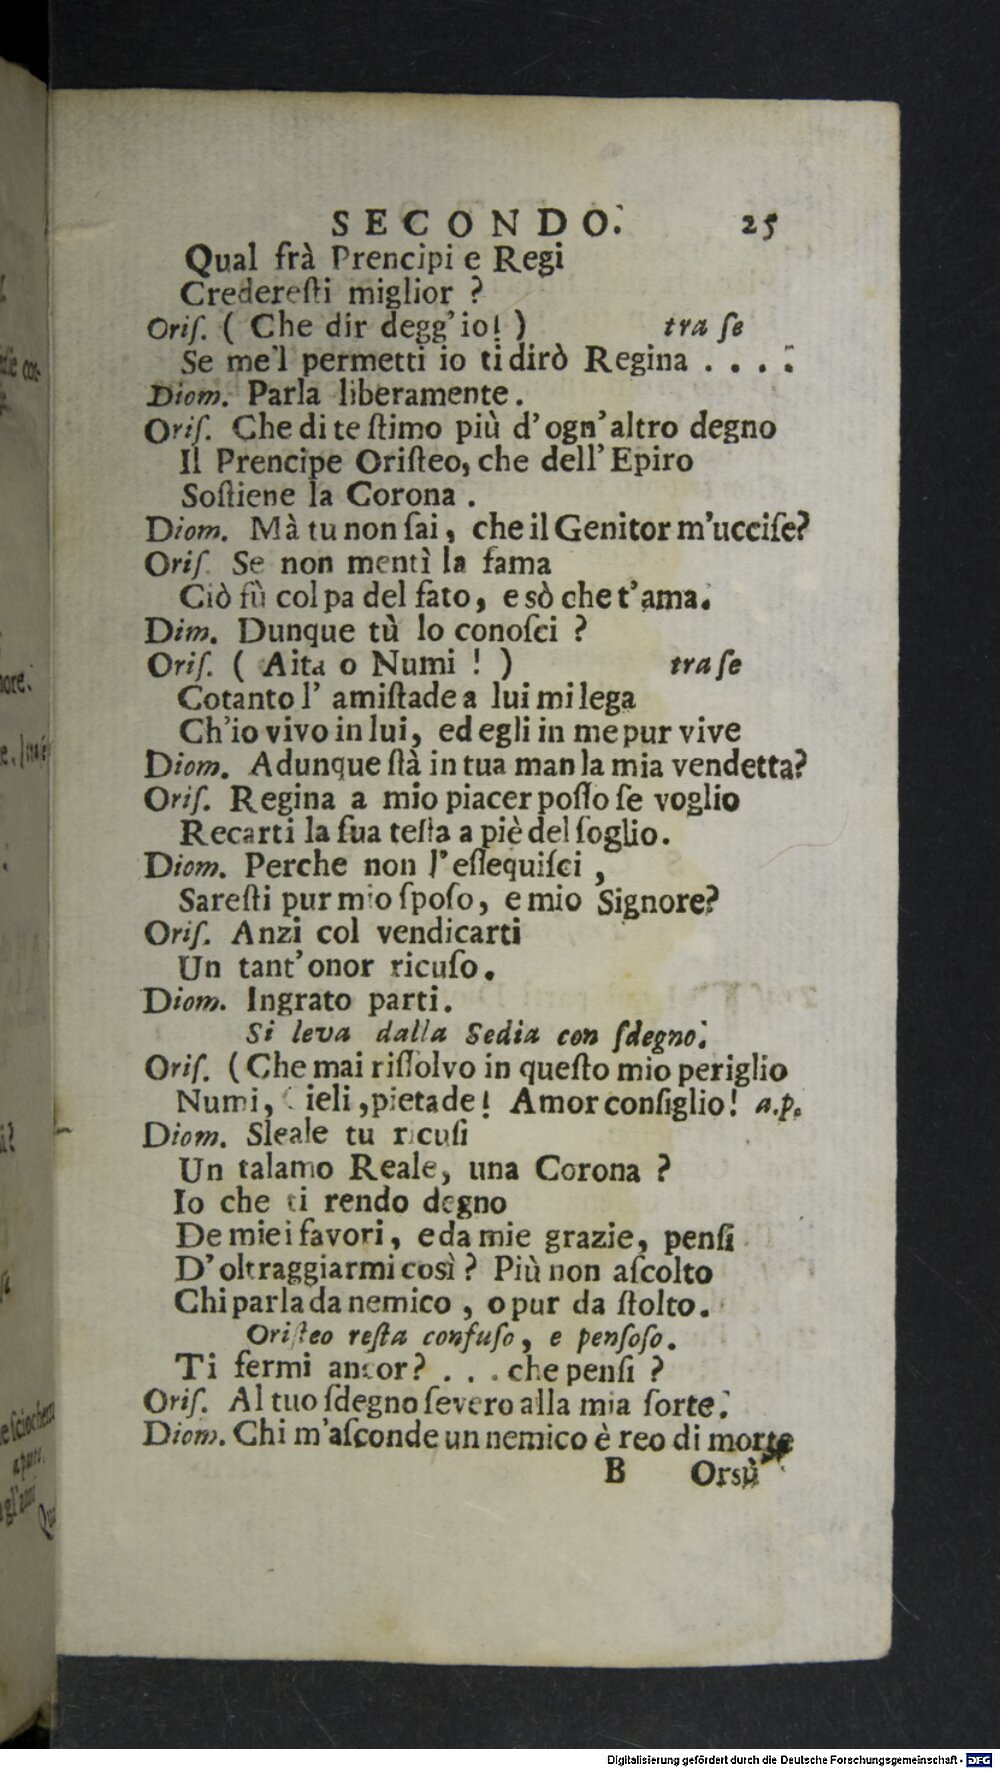 SECONDO. 25
Qual frà Prencipi e Regi
Credereſti miglior ?
Oriſ. ( Che dir degg'io! ) tra ſe
Se me'l permetti io ti dirò Regina . . . .
Diom. Parla liberamente.
Oriſ. Che di te ſtimo più d'ogn'altro degno
Il Prencipe Oriſteo, che dell'Epiro
Soſtiene la Corona .
Diom. Mà tu non ſai, che il Genitor m'ucciſe?
Oriſ. Se non mentì la fama
Ciò fù colpa del fato, e sò che t'ama.
Dim. Dunque tù lo conoſci ?
Oriſ. ( Aita o Numi ! ) tra ſe
Cotanto l' amiſtade a lui mi lega
Ch'io vivo in lui, ed egli in me pur vive
Diom. Adunque ſtà in tua man la mia vendetta?
Oriſ. Regina a mio piacer poſſo ſe voglio
Recarti la ſua teſta a piè del ſoglio.
Diom. Perche non l'eſſequiſci ,
Sareſti pur mio ſpoſo, e mio Signore?
Oriſ. Anzi col vendicarti
Un tant'onor ricuſo.
Diom. Ingrato parti.
Si leva dalla Sedia con ſdegno.
Oriſ. (Che mai riſſolvo in queſto mio periglio
Numi, Cieli, pietade! Amor conſiglio! a.p.
Diom. Sleale tu ricuſi
Un talamo Reale, una Corona ?
Io che ti rendo degno
De miei favori, e da mie grazie, penſi
D'oltraggiarmi così ? Più non aſcolto
Chi parla da nemico , o pur da ſtolto.
Oriſteo reſta confuſo, e penſoſo.
Ti fermi ancor? . . . che penſi ?
Oriſ. Al tuo ſdegno ſevero alla mia ſorte.
Diom. Chi m'aſconde un nemico è reo di morte
B Orsù
Digitalisierung gefördert durch die Deutsche Forschungsgemeinschaft - DFG